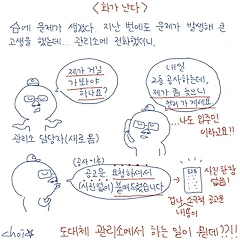 <화가 난다>
집에 문제가 생겼다. 지난 번에도 문제가 발생해 큰
고생을 했는데... 관리소에 전화했더니.
제가 거길
가봐야
하나요?
관리소 담당자(새로옴)
내일
2층 공사하는데,
제가 좀 늦으니
먼저 가 계세요
...나도 입주민
이라고요!!
(공사 이후)
공고문 요청하셔서
(사진 찍어) 붙여드렸습니다
사진 한 장
딸랑!
겁나 소극적 공고문
내용이
도대체 관리소에서 하는 일이 뭔데??!!
choi